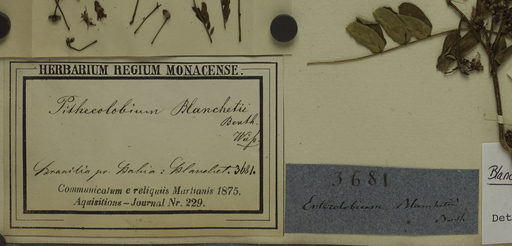 HERBARIUM REGIUM MONACENSE.
Pithecolobium Blanchetii
Benth.
Brasilia pr. Bahia: Blanchet. 3681.
Communicatum e reliquiis Martianis 1875.
Aquisitions – Journal Nr. 229.
3681
Enterolobium Blanchetii
Benth
Blanc
Det